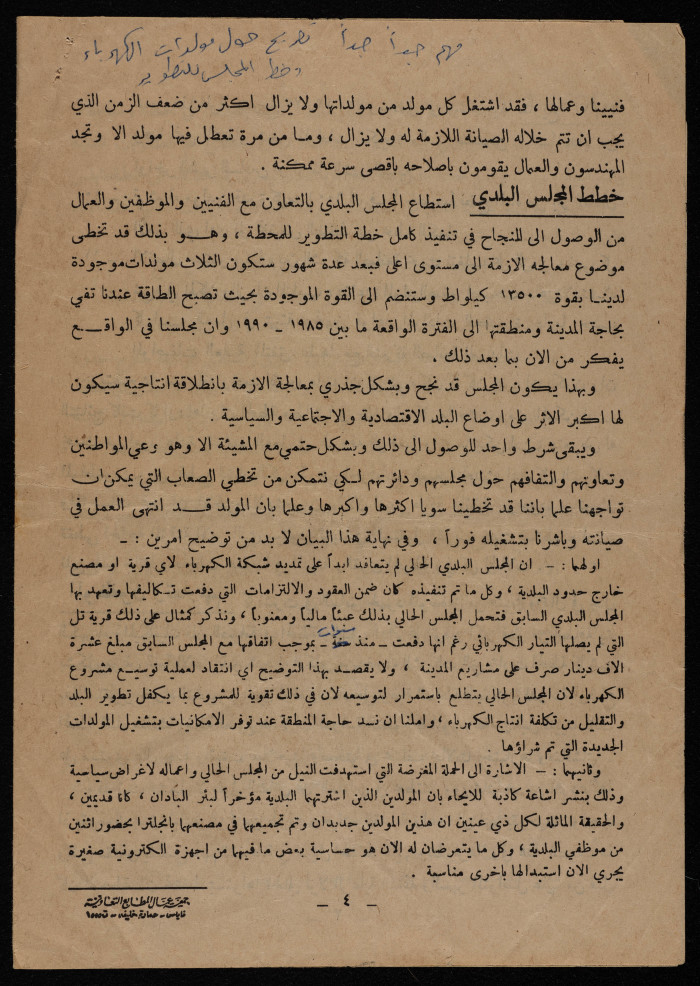 مهم جداً جداً تصريح حول مولدات الكهرباء
وخط المجلس للتطوير
فنيينا وعمالها ، فقد اشتغل كل مولد من مولداتها ولا يزال اكثر من ضعف الزمن الذي
يجب ان تتم خلاله الصيانة اللازمة له ولا يزال ، وما من مرة تعطل فيها مولد الا وتجد
المهندسون والعمال يقومون باصلاحه باقصى سرعة ممكنة .
خطط المجلس البلدي استطاع المجلس البلدي بالتعاون مع الفنيين والموظفين والعمال
من الوصول الى النجاح في تنفيذ كامل خطة التطوير للمحطة ، وهو بذلك قد تخطى
موضوع معالجه الازمة الى مستوى اعلى فبعد عدة شهور ستكون الثلاث مولدات موجودة
لدينا بقوة ١٣٥٠٠ كيلواط وستنضم الى القوة الموجودة بحيث تصبح الطاقة عندنا تفي
بحاجة المدينة ومنطقتها الى الفترة الواقعة ما بين ١٩٨٥ - ١٩٩٠ وان مجلسنا في الواقع
يفكر من الان بما بعد ذلك .
وبهذا يكون المجلس قد نجح وبشكل جذري بمعالجة الازمة بانطلاقة انتاجية سيكون
لها اكبر الاثر على اوضاع البلد الاقتصادية والاجتماعية والسياسية .
ويبقى شرط واحد للوصول الى ذلك وبشكل حتمي مع المشيئة الا وهو وعي المواطنين
وتعاونهم والتفافهم حول مجلسهم ودائرتهم لكي نتمكن من تخطي الصعاب التي يمكن ان
تواجهنا علما باننا قد تخطينا سويا اكثرها واكبرها وعلما بان المولد قد انتهى العمل في
صيانته وباشرنا بتشغيله فوراً ، وفي نهاية هذا البيان لا بد من توضيح امرين : -
اولهما : - ان المجلس البلدي الحالي لم يتعاقد ابداً على تمديد شبكة الكهرباء لاي قرية او مصنع
خارج حدود البلدية ، وكل ما تم تنفيذه كان ضمن العقود والالتزامات التي دفعت تكاليفها وتعهد بها
المجلس البلدي السابق فتحمل المجلس الحالي بذلك عبئاً مالياً ومعنوياً ، ونذكر كمثال على ذلك قرية تل
التي لم يصلها التيار الكهربائي رغم انها دفعت - منذ سنوات - بموجب اتفاقها مع المجلس السابق مبلغ عشرة
الاف دينار صرف على مشاريع المدينة ، ولا يقصد بهذا التوضيح اي انتقاد لعملية توسيع مشروع
الكهرباء لان المجلس الحالي يتطلع باستمرار لتوسيعه لان في ذلك تقوية للمشروع بما يكفل تطوير البلد
والتقليل من تكلفة انتاج الكهرباء ، واملنا ان نسد حاجة المنطقة عند توفر الامكانيات بتشغيل المولدات
الجديدة التي تم شراؤها .
وثانيهما : - الاشارة الى الحملة المغرضة التي استهدفت النيل من المجلس الحالي واعماله لاغراض سياسية
وذلك بنشر اشاعة كاذبة للايحاء بان المولدين الذين اشترتهما البلدية مؤخراً لبئر البادان ، كانا قديمين ،
والحقيقة الماثلة لكل ذي عينين ان هذين المولدين جديدان وتم تجميعهما في مصنعهما بانجلترا بحضور اثنين
من موظفي البلدية ، وكل ما يتعرضان له الان هو حساسية بعض ما فيهما من اجهزة الكترونية صغيرة
يجري الان استبدالها باخرى مناسبة .
- ٤ -
جمعية عمال المطابع التعاونية
نابلس - عمارة خليفه -